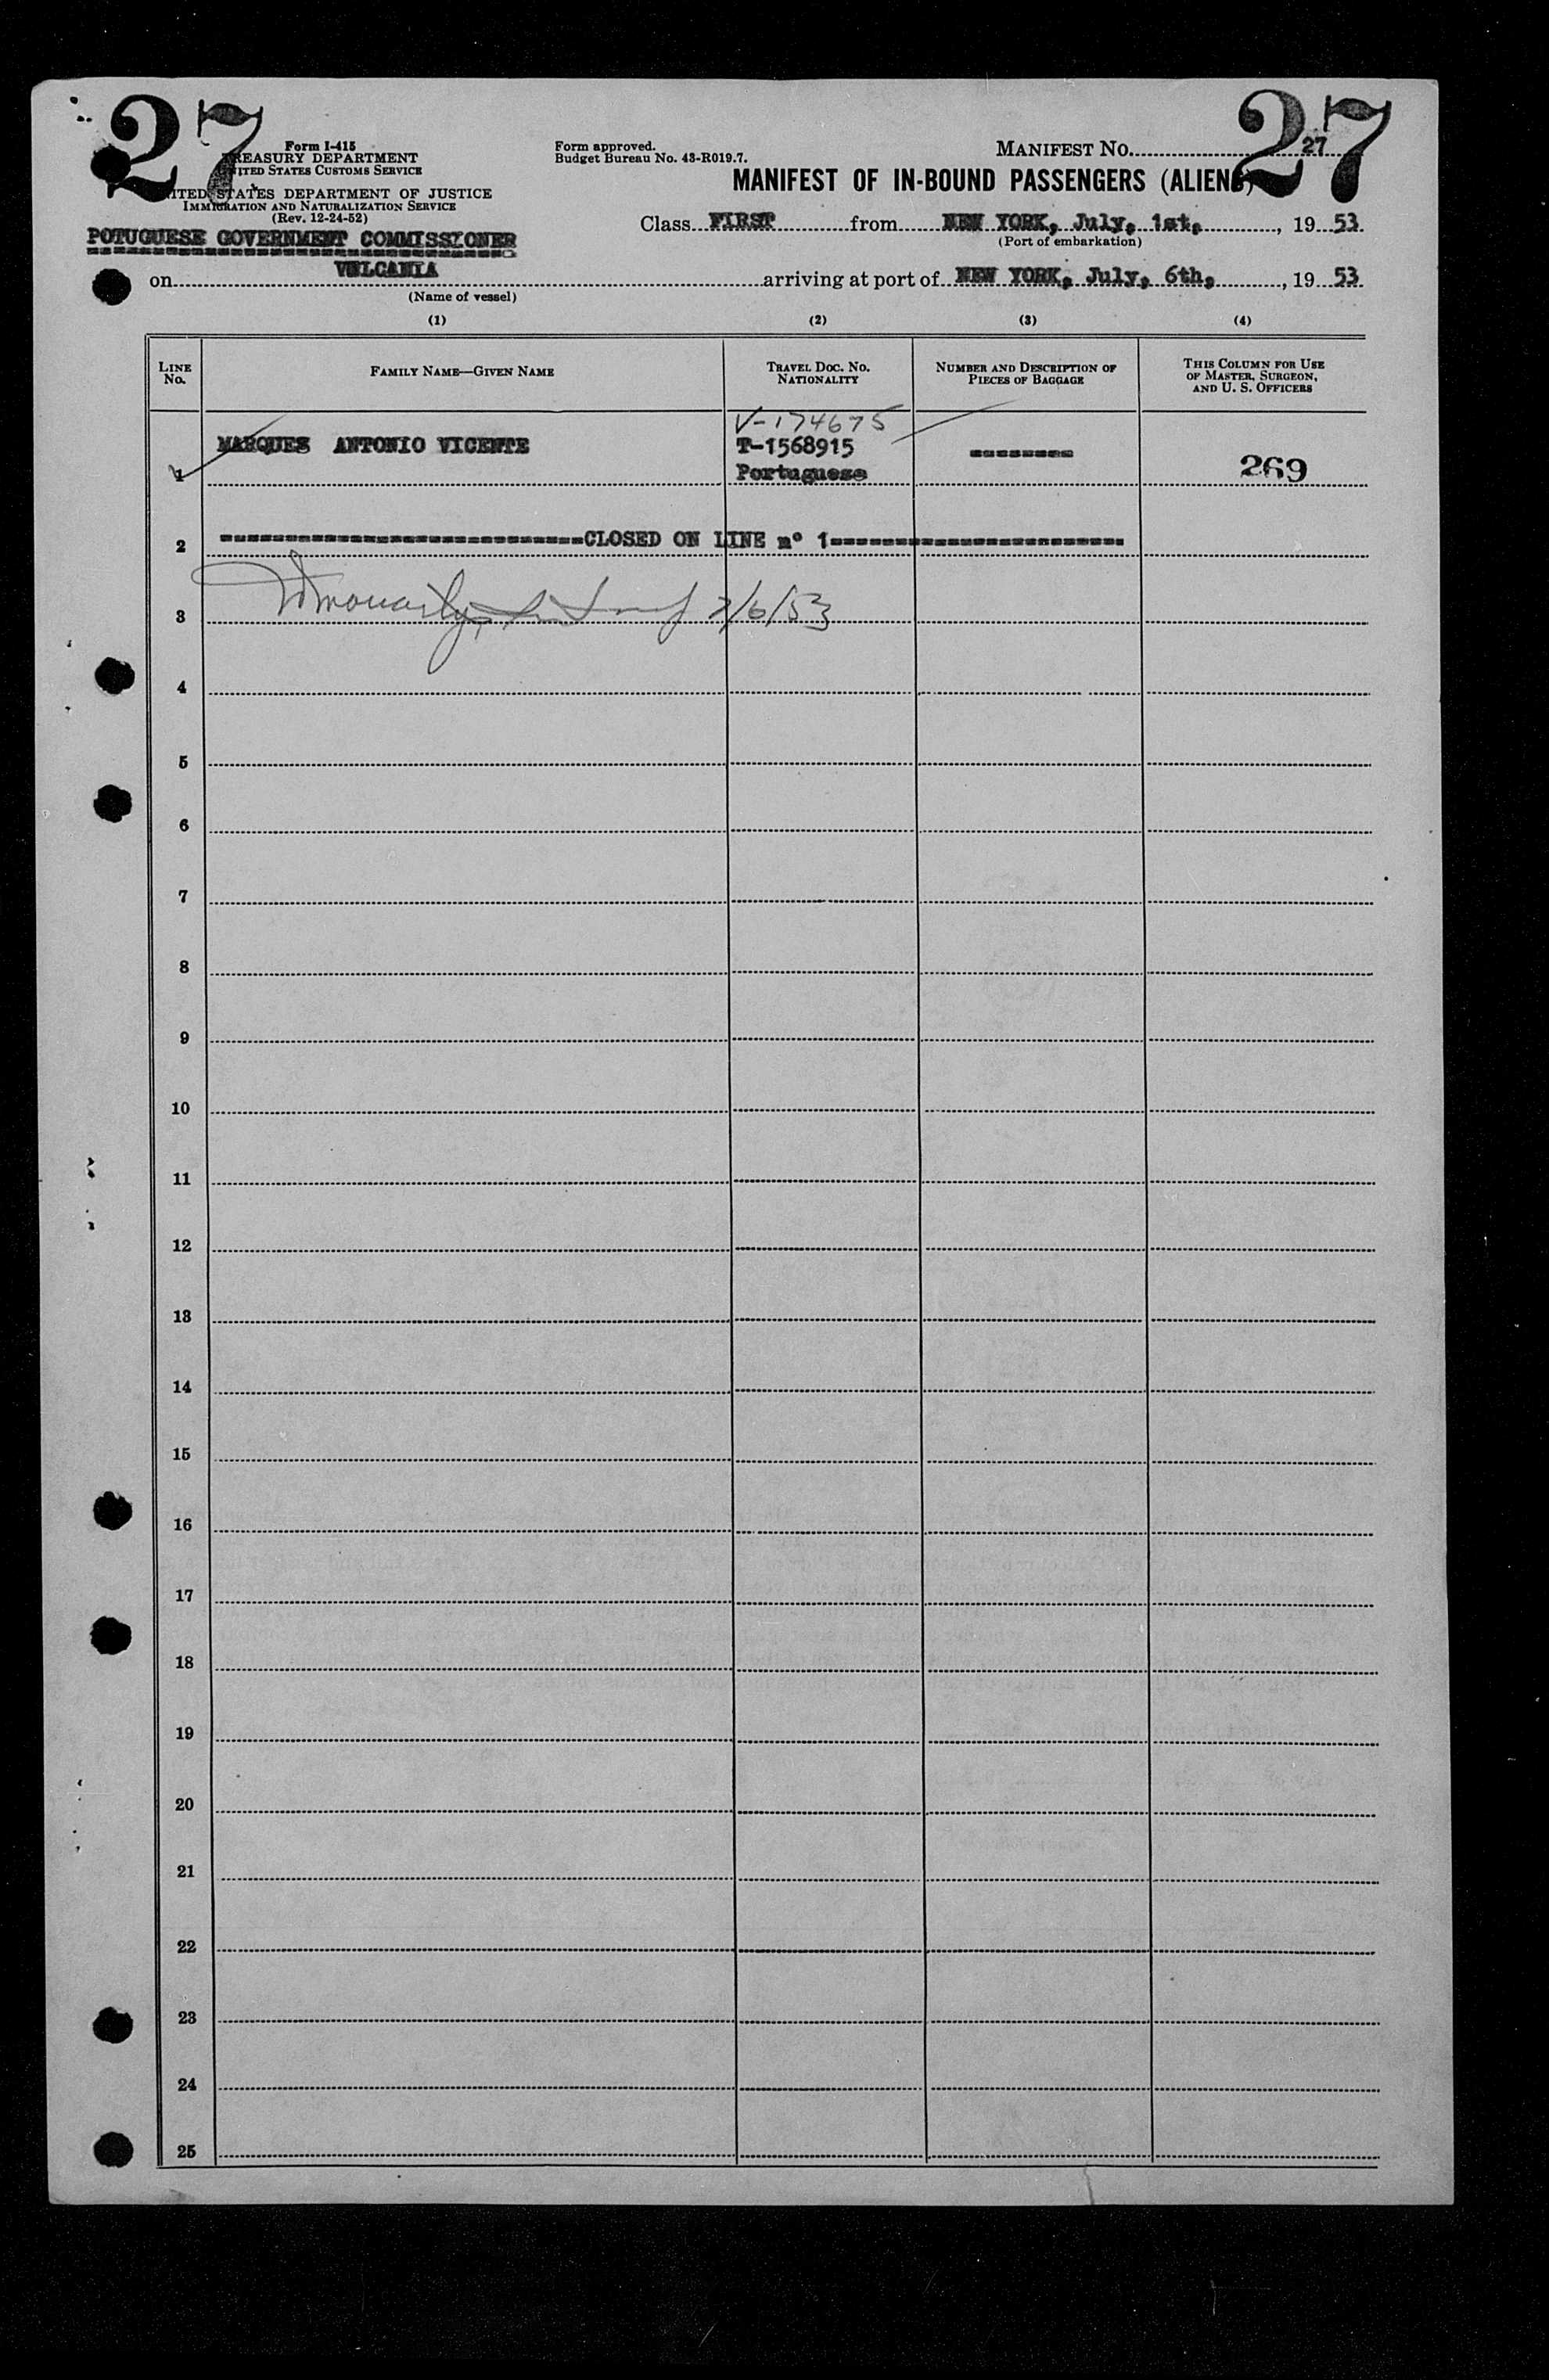 27 27
Form I-415
TREASURY DEPARTMENT
UNITED STATES CUSTOMS SERVICE
UNITED STATES DEPARTMENT OF JUSTICE
IMMIGRATION AND NATURALIZATION SERVICE
(Rev. 12-24-52)
Form approved.
Budget Bureau No. 43-R019.7.
MANIFEST NO. 27
MANIFEST OF IN-BOUND PASSENGERS (ALIENS)
Class FIRST from NEW YORK, July, 1st, , 19 53
(Port of embarkation)
POTUGUESE GOVERNMENT COMMISSIONER
on VULCANIA arriving at port of NEW YORK, July, 6th, , 19 53
(Name of vessel)
(1) (2) (3) (4)
LINE No. FAMILY NAME—GIVEN NAME TRAVEL DOC. NO. NATIONALITY NUMBER AND DESCRIPTION OF PIECES OF BAGGAGE THIS COLUMN FOR USE OF MASTER, SURGEON, AND U. S. OFFICERS
V-174675
1 MARQUES ANTONIO VICENTE T-1568915 -------- 269
Portuguese
2 ----------------------------CLOSED ON LINE nº 1-----------------------
3 7/6/53
4
5
6
7
8
9
10
11
12
13
14
15
16
17
18
19
20
21
22
23
24
25